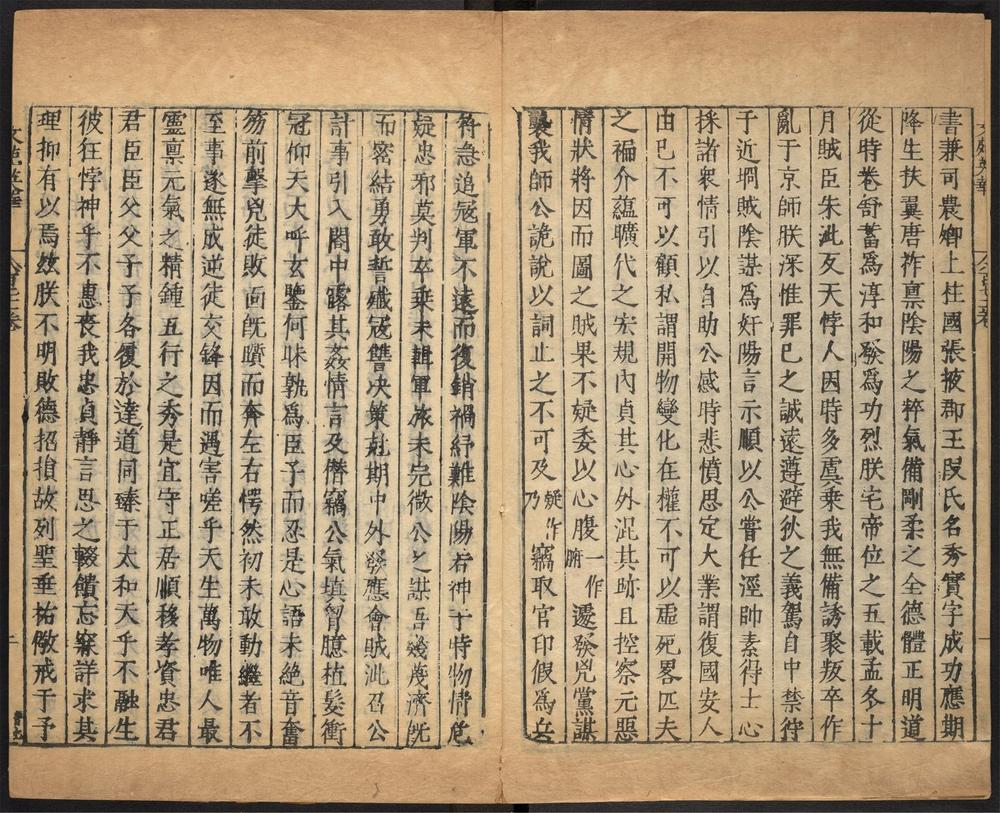 書兼司農卿上柱國張掖郡王段氏名秀實字成功應期
降生扶翼唐祚禀陰陽之粹氣備剛柔之全德體正明道
從時卷舒蓄爲淳和發爲功烈朕宅帝位之五載孟冬十
月賊臣朱泚反天悖人因時多虞乘我無備誘聚叛卒作
亂于京師朕深惟罪已之誠遠遵避狄之義駕自中禁狩
于近坰賊陰謀爲奸陽言示順以公嘗任涇帥素得士心
採諸衆情引以自助公感時悲憤思定大業謂復國安人
由已不可以顧私謂開物變化在權不可以虛死畧匹夫
之褊介蘊曠代之宏規内貞其心外泥其跡且控察元惡
情狀將因而圖之賊果不疑委以心腹一作腑遷發兇黨謀
襲我師公詭說以詞止之不可及疑作乃竊取官印假爲兵
符急追冦軍不遠而復銷禍紓難陰陽若神于時物情危
疑忠邪莫判卒乗未輯軍旅未完微公之謀吾幾蔑濟旣
而密結勇敢誓殱冦讐决策尅期中外發應會賊泚召公
計事引入閤中露其姦情言及僭竊公氣填胷臆植髮衝
冠仰天大呼玄鑒何昧孰爲臣子而忍是心語未絶音奮
笏前擊兇徒敗面旣躓而奔左右愕然初未敢動繼者不
至事遂無成逆徒交鋒因而遇害嗟乎天生萬物唯人最
靈禀元氣之精鍾五行之秀是宜守正居順移孝資忠君
君臣臣父父子子各復於達道同臻于太和天乎不融生
彼狂悖神乎不惠喪我忠貞靜言思之輟饋忘寐詳求其
理抑有以焉玆朕不明敗德招損故列聖垂祐儆戒于予